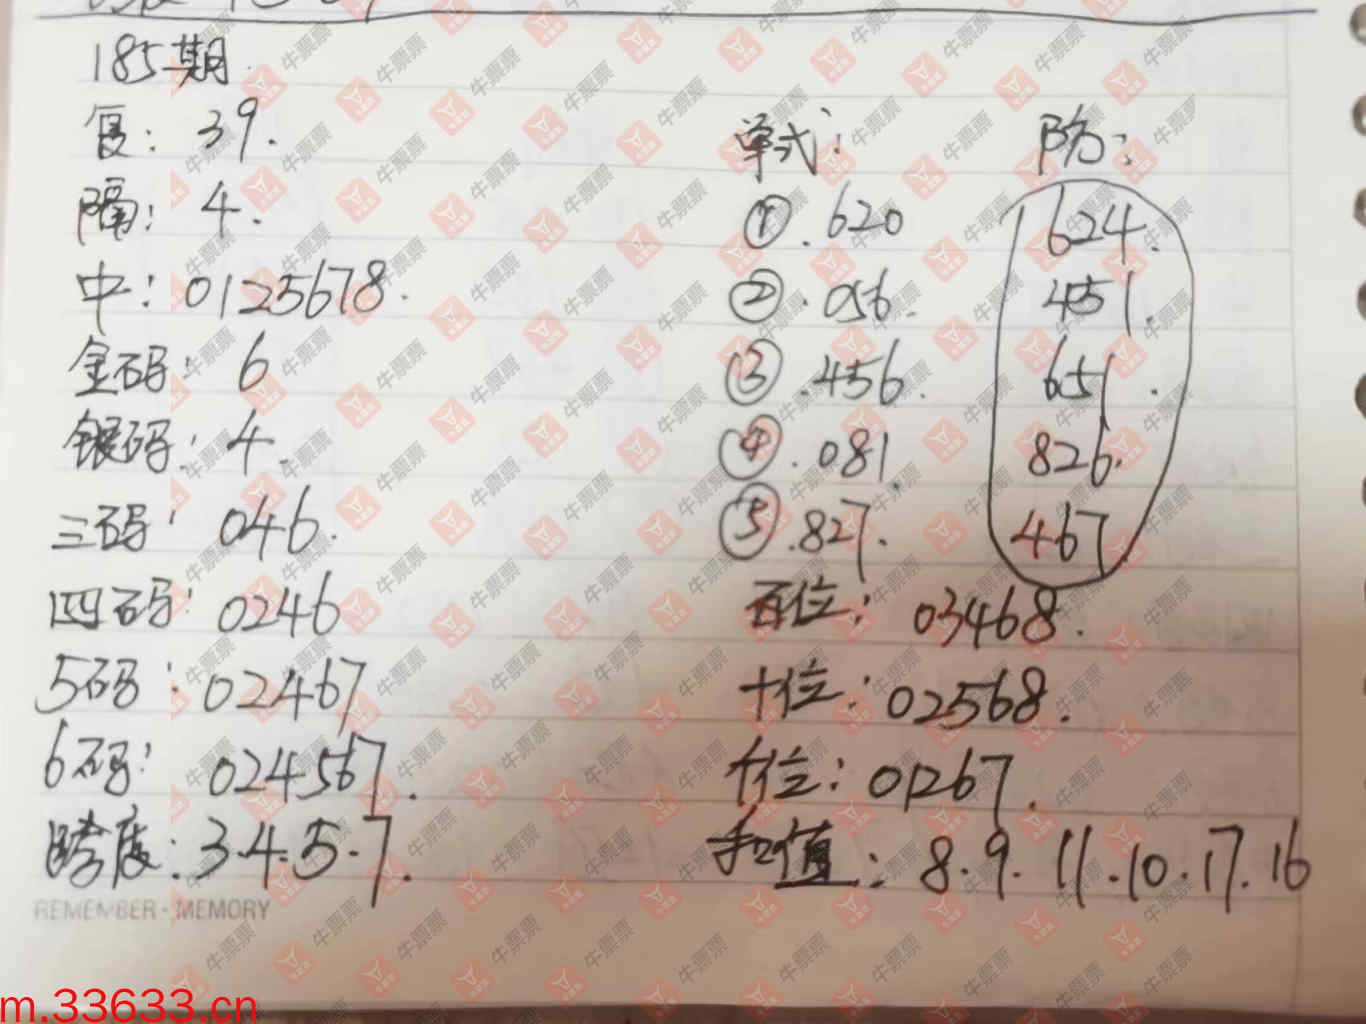 185期
复: 39.
隔: 4.
中: 0125678.
金码: 6
银码: 4.
三码: 046.
四码: 0246
5码: 02467
6码: 024567.
跨度: 3.4.5.7.
单式:
①.620
②.056.
③.456.
④.081.
⑤.827.
防:
624.
451.
651.
826.
467
百位: 03468.
十位: 02568.
个位: 01267.
和值: 8.9.11.10.17.16
REMEMBER·MEMORY
牛票票
m.33633.cn